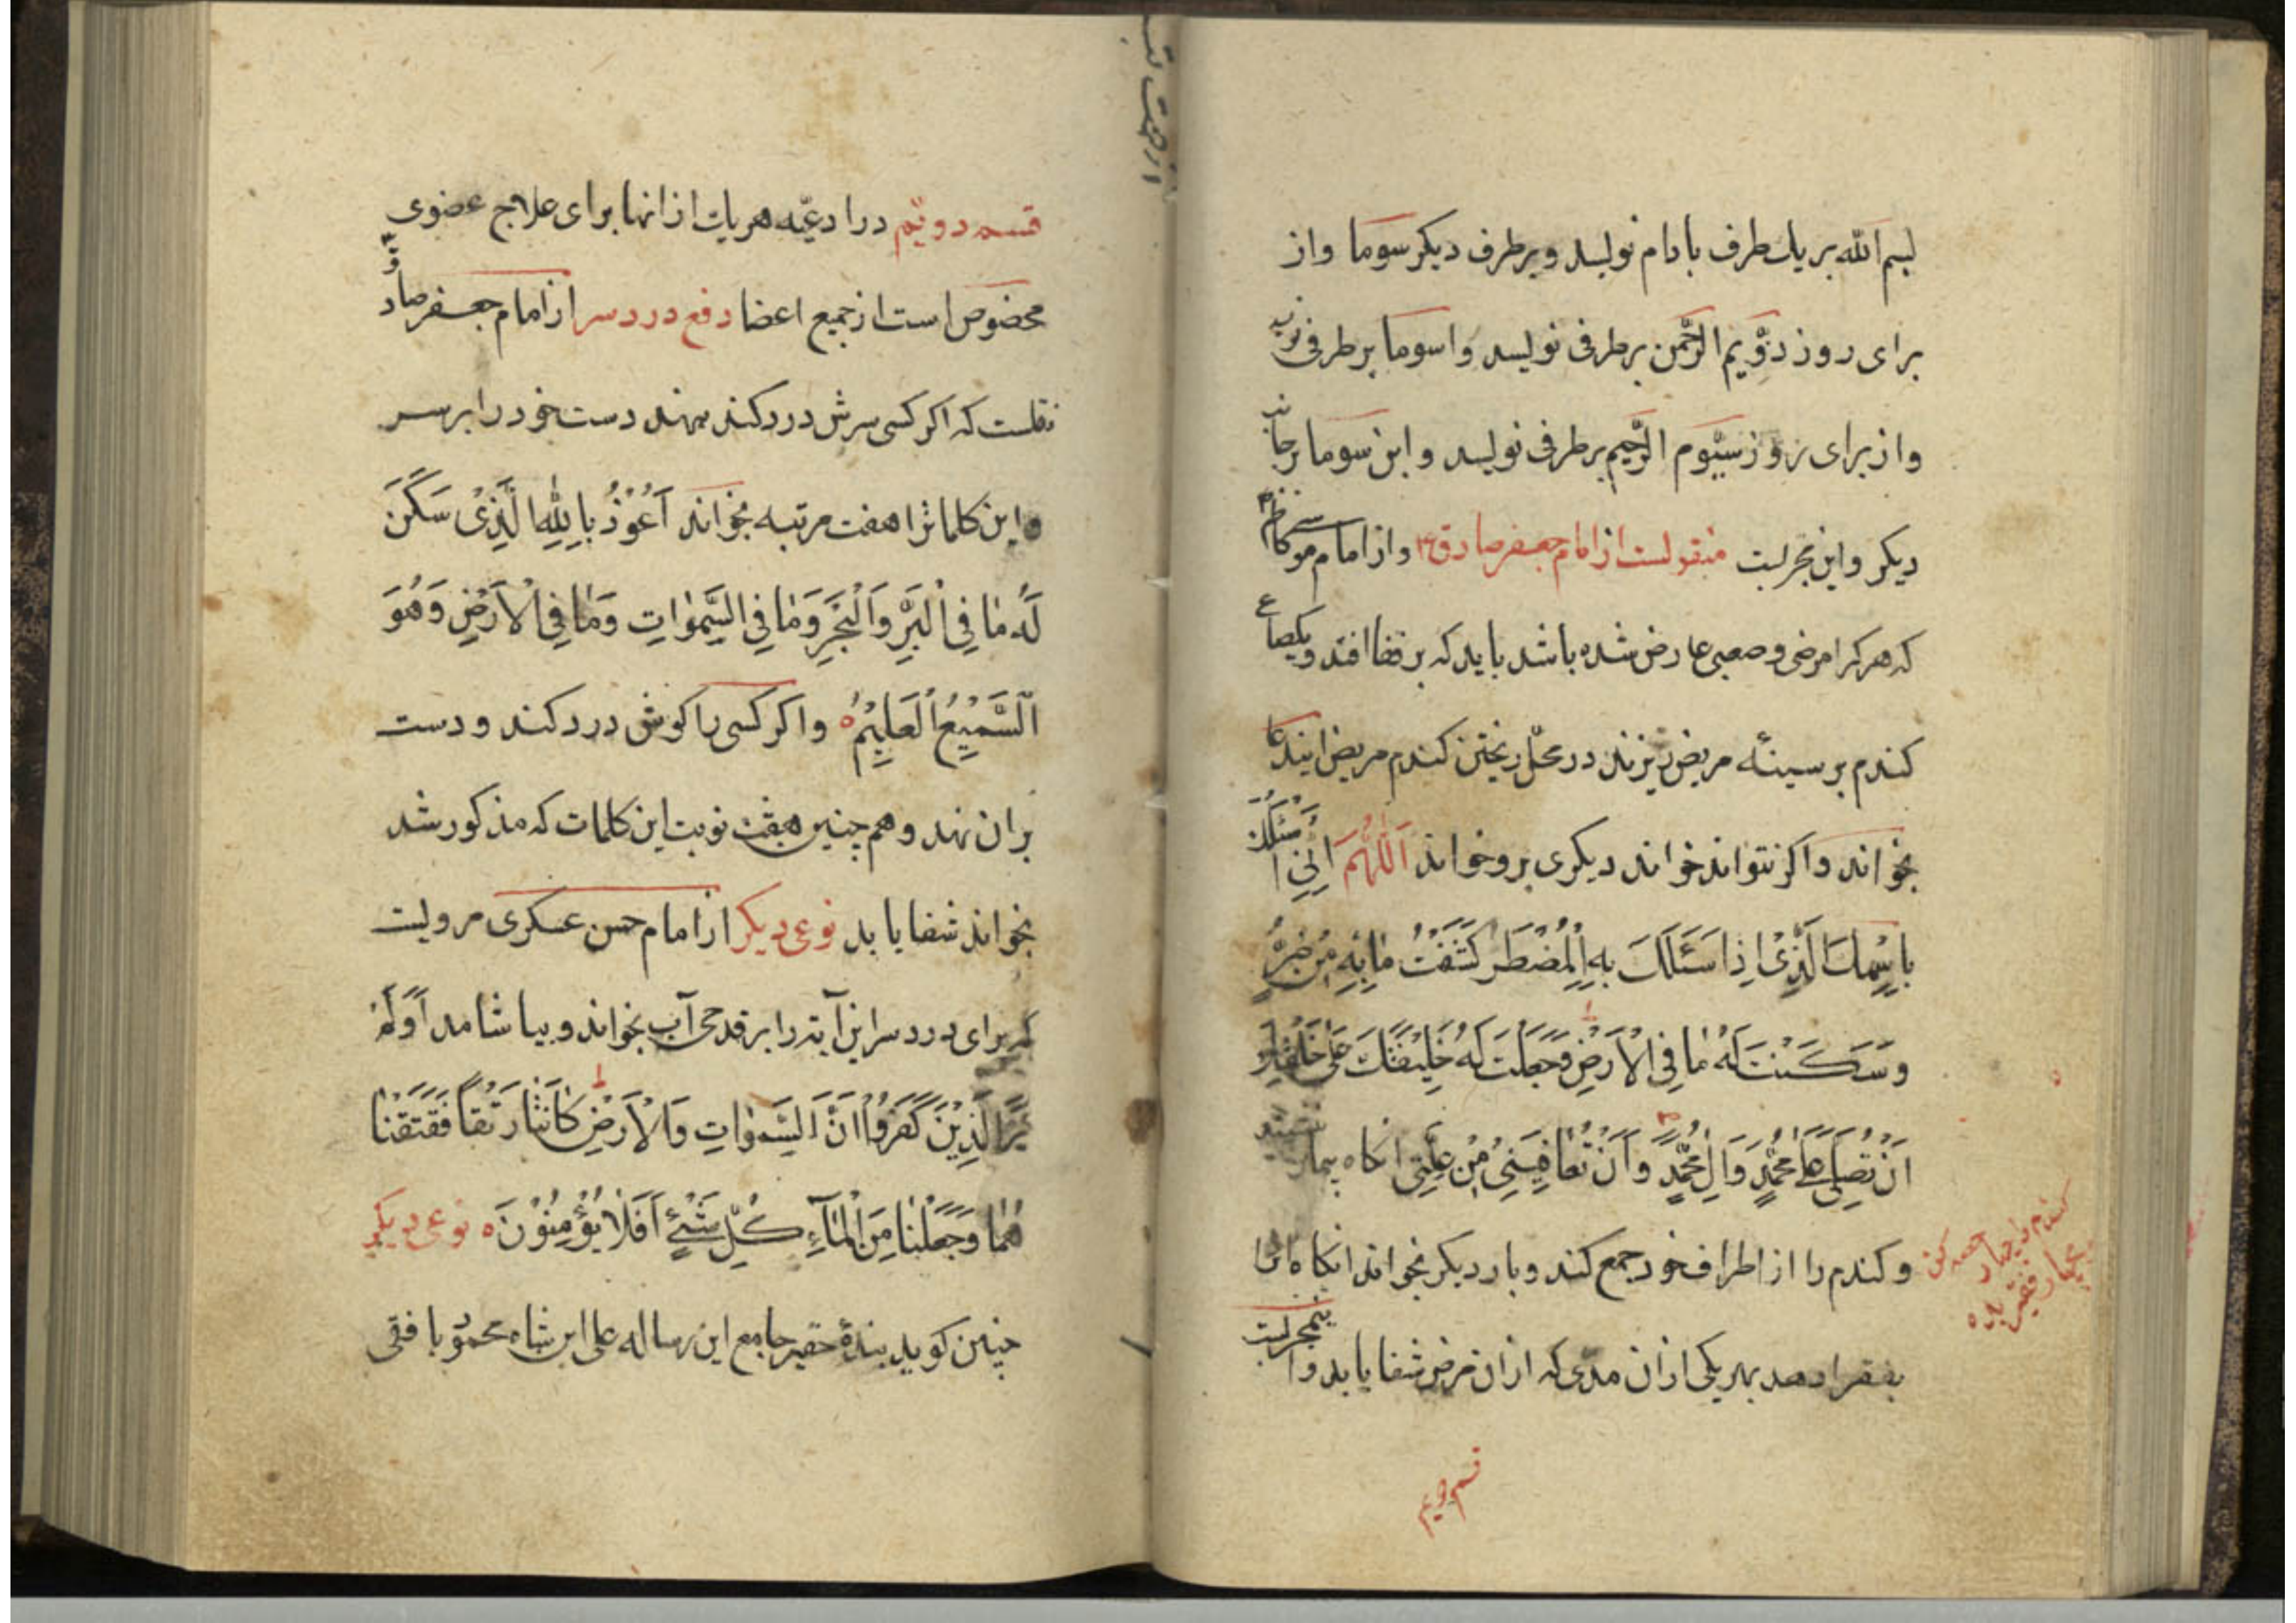 بسم الله بر يك طرف بادام نويسد و بر طرف ديكر سوما واز
براى روز دوّيم الرّحمن بر طرفى نويسد واسوما بر طرفى نويسد
واز براى روز سيّوم الرّحيم بر طرفى نويسد وابن سوما بر جانب
ديكر واين مجربست منقولست از امام جعفر صادق ع واز امام موسى كاظم ع
كه هركرا مرضى وصعبى عارض شده باشد بايد كه بر قفا افتد ويكصاع
كندم بر سينهٔ مريض ريزند در محلّ ريختن كندم مريض ايندعا
بخواند واكر نتواند خواند ديكرى بر وخواند اَللّٰهُمَّ اِنِّى اَسْئَلُكَ
بِاِسْمِكَ الَّذِىْ اِذَا سَئَلَكَ بِهِ الْمُضْطَرُ كَشَفْتَ مٰا بِهِ مِنْ ضُرٍّ
وَسَكَنْتَ لَهُ مٰا فِى الْاَرْضِ وَجَعَلْتَ لَهُ خَلِيْفَتَكَ عَلىٰ خَلْقِكَ
اَنْ تُصَلِّىَ عَلىٰ مُحَمَّدٍ وَاٰلِ مُحَمَّدٍ وَاَنْ تُعٰافِيَنِىْ مِنْ عِلَّتِى انكاه بيمار نشيند
وكندم را از اطراف خود جمع كند وبار ديكر بخواند انكاه انرا
بفقرا دهد بهر يكى ازان مدّى كه ازان مرض شفا يابد واين مجربست
كندم را چهار حصه كن
بچهار فقير بده
قسم دويم
از جهت تب
قسم دويّم در ادعيّه هر يك از انها براى علاج عضوى
مخصوص است از جميع اعضا دفع درد سر از امام جعفر صادق ع
نقلست كه اكر كسى سرش درد كند بنهد دست خود را بر سر
واين كلماترا هفت مرتبه بخواند اَعُوْذُ بِاللّٰهِ الَّذِىْ سَكَنَ
لَهُ مٰا فِى الْبَرِّ وَالْبَحْرِ وَمٰا فِى السَّمٰوٰاتِ وَمٰا فِى الْاَرْضِ وَهُوَ
اَلسَّمِيْعُ الْعَلِيْمُ ه واكر كسى را كوش درد كند ودست
بران نهد وهم چنين هفت نوبت اين كلمات كه مذكور شد
بخواند شفا يابد نوعى ديكر از امام حسن عسكرى مرويست
كه براى درد سر اين آيه را بر قدحى آب بخواند وبياشامد اَوَلَمْ
يَرَ الَّذِيْنَ كَفَرُوْا اَنَّ السَّمٰوٰاتِ وَالْاَرْضَ كٰانَتٰا رَتْقاً فَفَتَقْنٰا
هُمٰا وَجَعَلْنٰا مِنَ الْمٰآءِ كُلَّ شَئٍْ اَفَلٰا يُؤْمِنُوْنَ ه نوعى ديكر
چنين كويد بندهٔ حقير جامع اين رساله على ابن شاه محمود بافقى